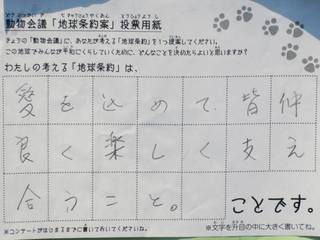 動物会議「地球条約案」投票用紙
きょうの「動物会議」に、あなたが考える「地球条約」を1つ提案してください。
この地球でみんなが平和にくらしていくために、どんなことを決めたらよいと思いますか?
わたしの考える「地球条約」は、
愛を込めて皆仲
良く楽しく支え
合うこと。
ことです。
※コンテナーがはじまるまでに書いておいてくださいね。
※文字を升目の中に大きく書いてね。